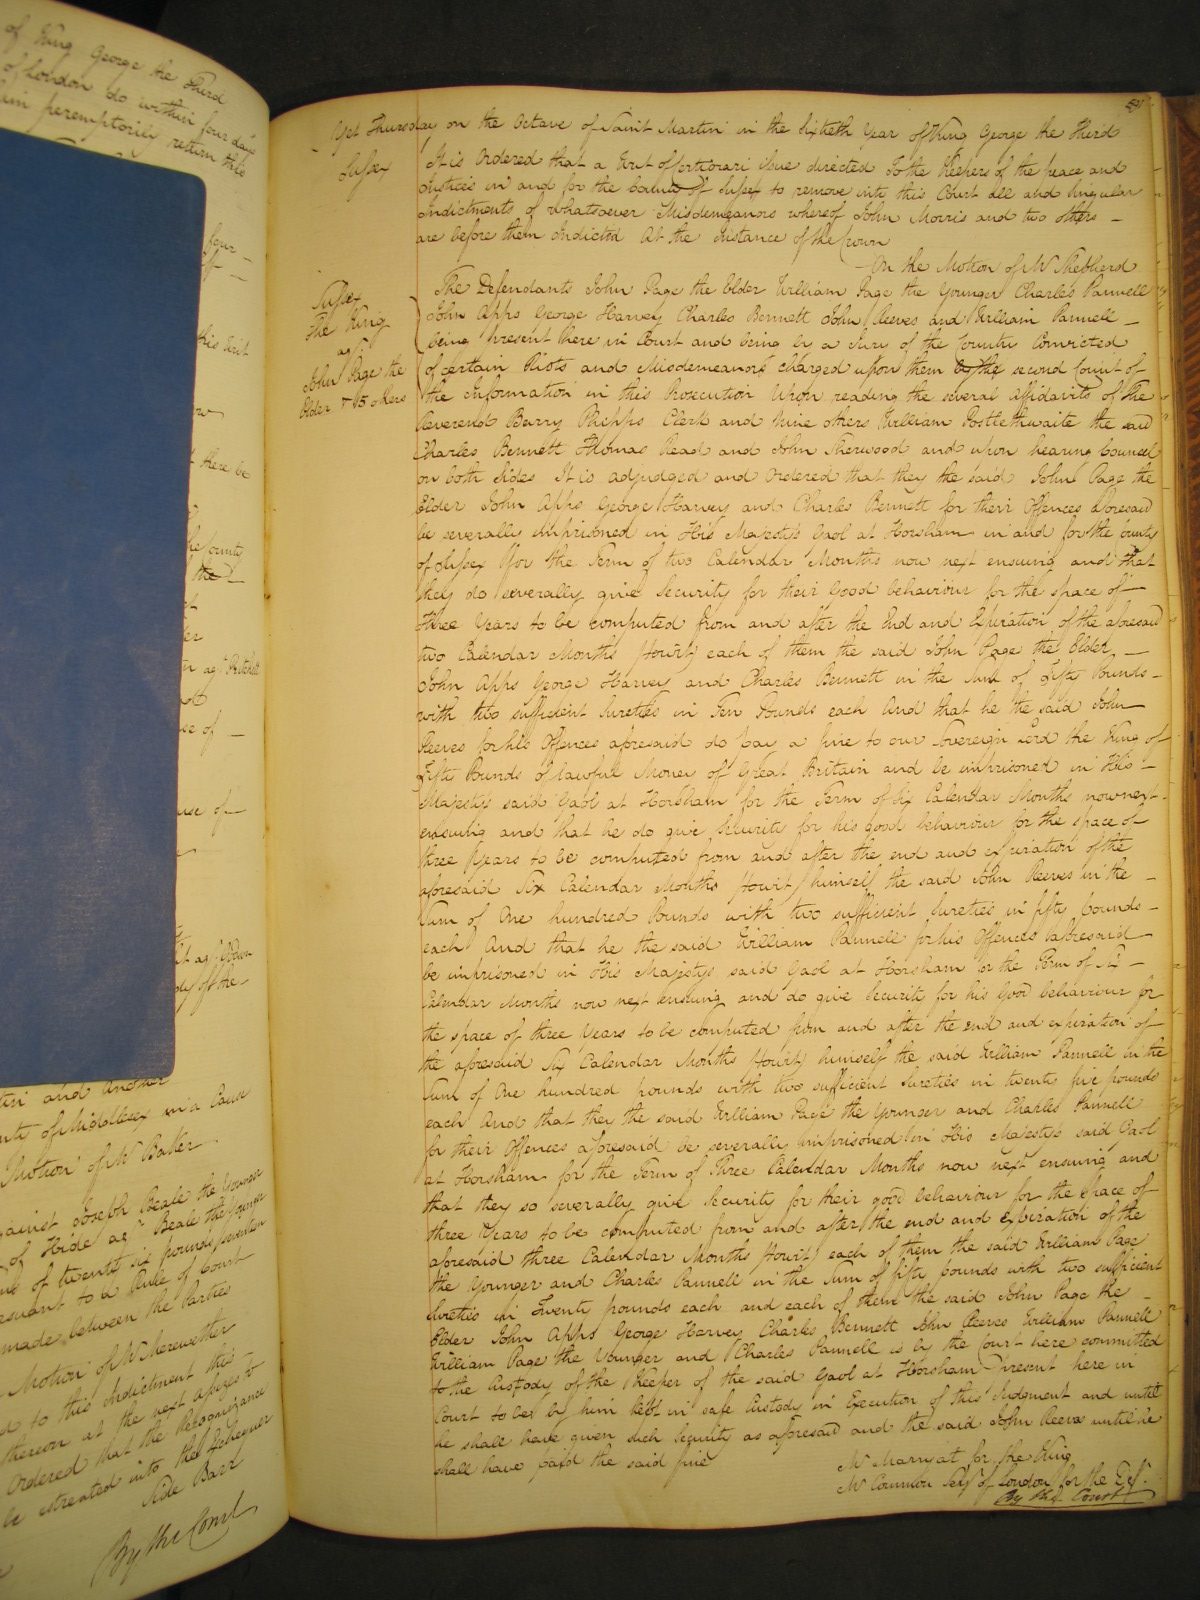 of King George the Third
of London do within four days
him peremptorily return this
four
this Writ
there be
the County
the
use of
use of
and Another
of Middlesex in a Cause
Motion of Mr Baker
against Joseph Beale the Younger
of Hide agt Beale the Younger
of twenty six pounds seventeen
pursuant to a Rule of Court
made between the Parties
Motion of Mr Merewether
to this Indictment this
thereon at the next assizes to
Ordered that the Recognizance
be estreated into the Exchequer
Side Barr
By the Court
Yet Thursday on the Octave of Saint Martin in the Sixtieth Year of King George the Third
Sussex
It is Ordered that a Writ of Certiorari issue directed To the Keepers of the peace and
Justices in and for the County of Sussex to remove into this Court All and Singular
Indictments of whatsoever Misdemeanors whereof John Morris and two others –
are before them Indicted At the Instance of the Crown
On the Motion of Mr Shepherd
Sussex
The King
agt
John Page the
Elder & 15 others
The Defendants John Page the Elder William Page the Younger Charles Pannell
John Apps George Harvey Charles Bennett John Reeves and William Pannell –
being present here in Court and being by a Jury of the Country Convicted
of certain Riots and Misdemeanors charged upon them by the second Count of
the Information in this Prosecution Upon reading the several affidavits of the
Reverend Barry Phipps Clerk and Nine others William Postlethwaite the said
Charles Bennett Thomas Read and John Sherwood and upon hearing Counsel
on both Sides It is adjudged and Ordered that they the said John Page the
Elder John Apps George Harvey and Charles Bennett for their Offences aforesaid
be severally imprisoned in His Majesty's Gaol at Horsham in and for the County
of Sussex for the Term of two Calendar Months now next ensuing and that
they do severally give Security for their Good behaviour for the space of
three Years to be computed from and after the End and Expiration of the aforesaid
two Calendar Months To wit each of them the said John Page the Elder –
John Apps George Harvey and Charles Bennett in the Sum of Fifty Pounds –
with two sufficient Sureties in Ten Pounds each And that he the said John
Reeves for his Offences aforesaid do pay a fine to our Sovereign Lord the King of
Fifty Pounds of lawful Money of Great Britain and be imprisoned in His –
Majesty's said Gaol at Horsham for the Term of Six Calendar Months now next –
ensuing and that he do give Security for his good behaviour for the space of
three Years to be computed from and after the end and expiration of the
aforesaid Six Calendar Months To wit himself the said John Reeves in the –
Sum of One hundred Pounds with two sufficient Sureties in fifty pounds –
each And that he the said William Pannell for his Offences aforesaid
be imprisoned in His Majesty's said Gaol at Horsham for the Term of Six –
Calendar Months now next ensuing and do give Security for his Good behaviour for
the space of three Years to be computed from and after the end and expiration of
the aforesaid Six Calendar Months To wit himself the said William Pannell in the
Sum of One hundred pounds with two sufficient Sureties in twenty five pounds
each And that they the said William Page the Younger and Charles Pannell
for their Offences aforesaid be severally imprisoned in His Majesty's said Gaol
at Horsham for the Term of Three Calendar Months now next ensuing and
that they so severally give Security for their good behaviour for the space of
three Years to be computed from and after the end and expiration of the
aforesaid three Calendar Months To wit each of them the said William Page
the Younger and Charles Pannell in the Sum of fifty pounds with two sufficient
Sureties in Twenty pounds each and each of them the said John Page the –
Elder John Apps George Harvey Charles Bennett John Reeves William Pannell
William Page the Younger and Charles Pannell is by the Court here committed
to the Custody of the Keeper of the said Gaol at Horsham present here in
Court to be by him kept in safe Custody in Execution of this Judgment and until
he shall have given such Security as aforesaid and the said John Reeves until he
shall have paid the said fine
Mr Marryat for the King
Mr Common Serjt of London for the Deft
By the Court